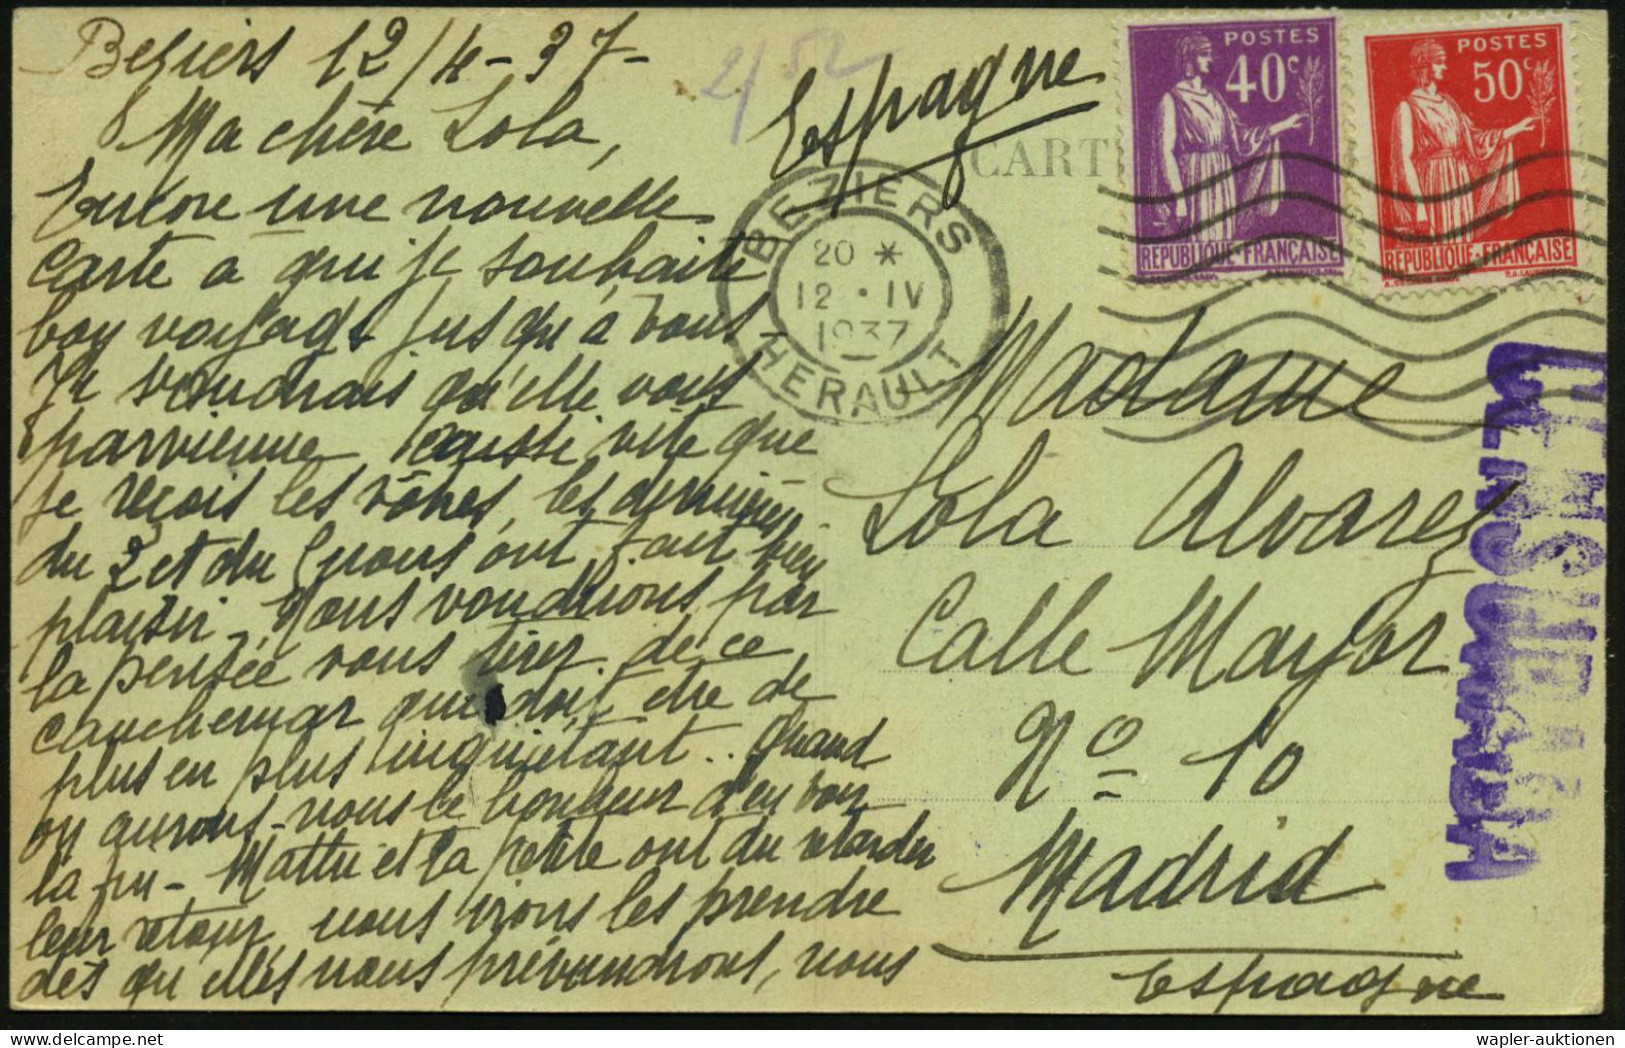 Beziers 12/4-37-
Ma chère Lola,
Encore une nouvelle
carte a qui je souhaite
bon voyage jusqu'à vous
Je voudrais qu'elle vous
parvienne aussi vite que
je reçois les vôtres, les dernières
du 2 et du nous ont fait bien
plaisir. Nous voudrions par
la pensée vous tirer de ce
cauchemar qui doit être de
plus en plus inquiétant.. Quand
on aurons-nous le bonheur d'en voir
la fin - et la petite ont du retarder
leur retour nous irons les prendre
dès qu'elles nous préviendront, nous
2/52
Espagne
CART
BEZIERS
20 *
12 · IV
1937
HERAULT
POSTES
40c
REPUBLIQUE·FRANÇAISE
POSTES
50c
REPUBLIQUE·FRANÇAISE
Madame
Lola Alvarez
Calle Mayor
No 10
Madrid
Espagne
CENSURADA
wapler-auktionen